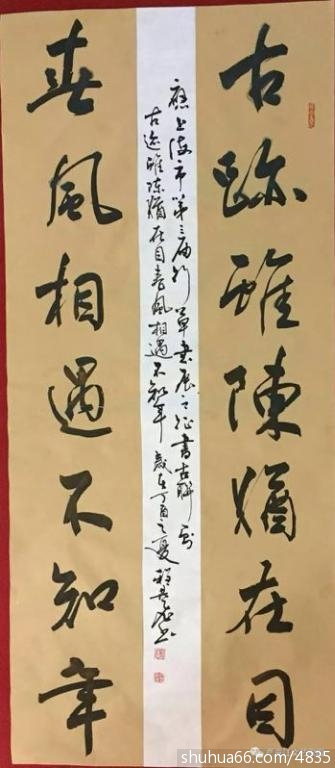 古跡雖陳猶在目
應上海市第三屆行草書展之征書古聯
古迹雖陳猶在目春風相遇不知年 歲在丁酉之夏
春風相遇不知年
shuhua66.com/4835